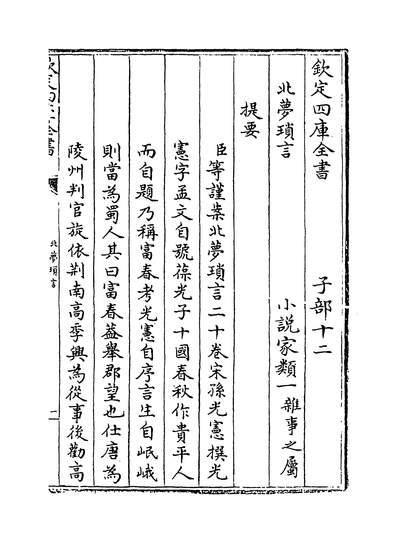 欽定四庫全書 子部十二
北夢瑣言 小說家類一雜事之屬
提要
臣等謹案北夢瑣言二十卷宋孫光憲撰光
憲字孟文自號葆光子十國春秋作貴平人
而自題乃稱富春考光憲自序言生自岷峨
則當為蜀人其曰富春葢舉郡望也仕唐為
陵州判官旋依荆南高季興為從事後勸高
欽定四庫全書
北夢瑣言